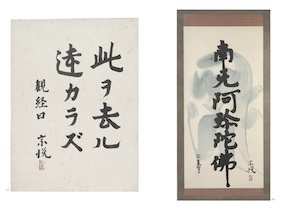 此ヲ去ル
遠カラズ
観経曰 宗悦
南无阿弥陀佛
宗悦